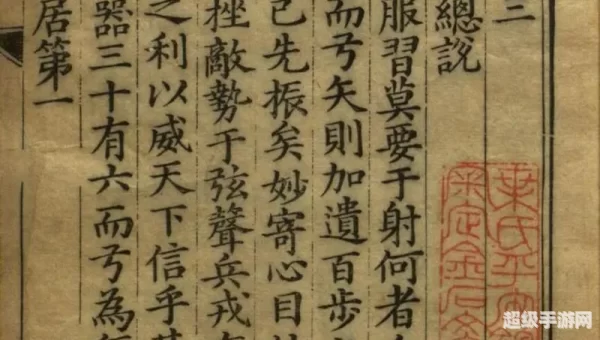 三
總說
服習莫要于射何者
而弓矢則加遺百步
己先振矣妙寄心目
挫敵勢于弦聲兵戎
之利以威天下信乎
器三十有六而弓為
居第一
葉氏平安
超级手游网